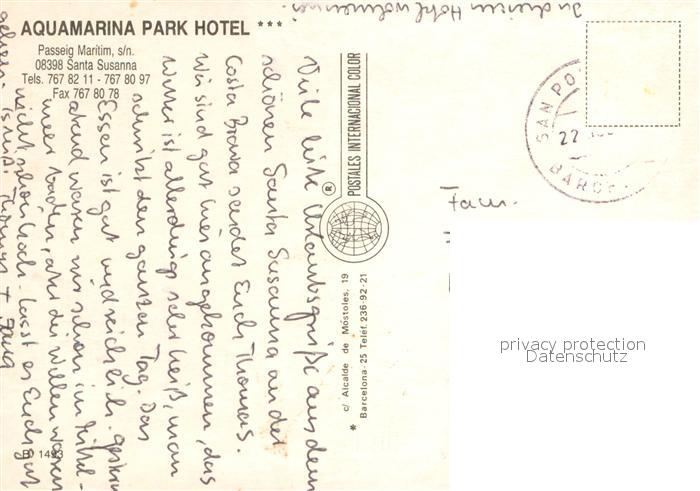 AQUAMARINA PARK HOTEL ***
Passeig Marítim, s/n.
08398 Santa Susanna
Tels. 767 82 11 - 767 80 97
Fax 767 80 78
In diesem Hotel wohnen wir.
Viele liebe Urlaubsgrüße aus dem
schönen Santa Susanna an der
Costa Brava sendet Euch Thomas.
Wir sind gut hier angekommen, das
Wetter ist allerdings sehr heiß, man
schwitzt den ganzen Tag. Das
Essen ist gut und reichlich. gestern
abend waren wir schon im Mittel-
meer baden, aber die Wellen waren
nicht schon hoch. Lasst es Euch gut
gehen. Thomas +
B) 1493
POSTALES INTERNACIONAL COLOR
®
* c/ Alcalde de Móstoles, 19
Barcelona-25 Teléf. 236-92-21
SAN PO
22
BARCE
Fam.
privacy protection
Datenschutz